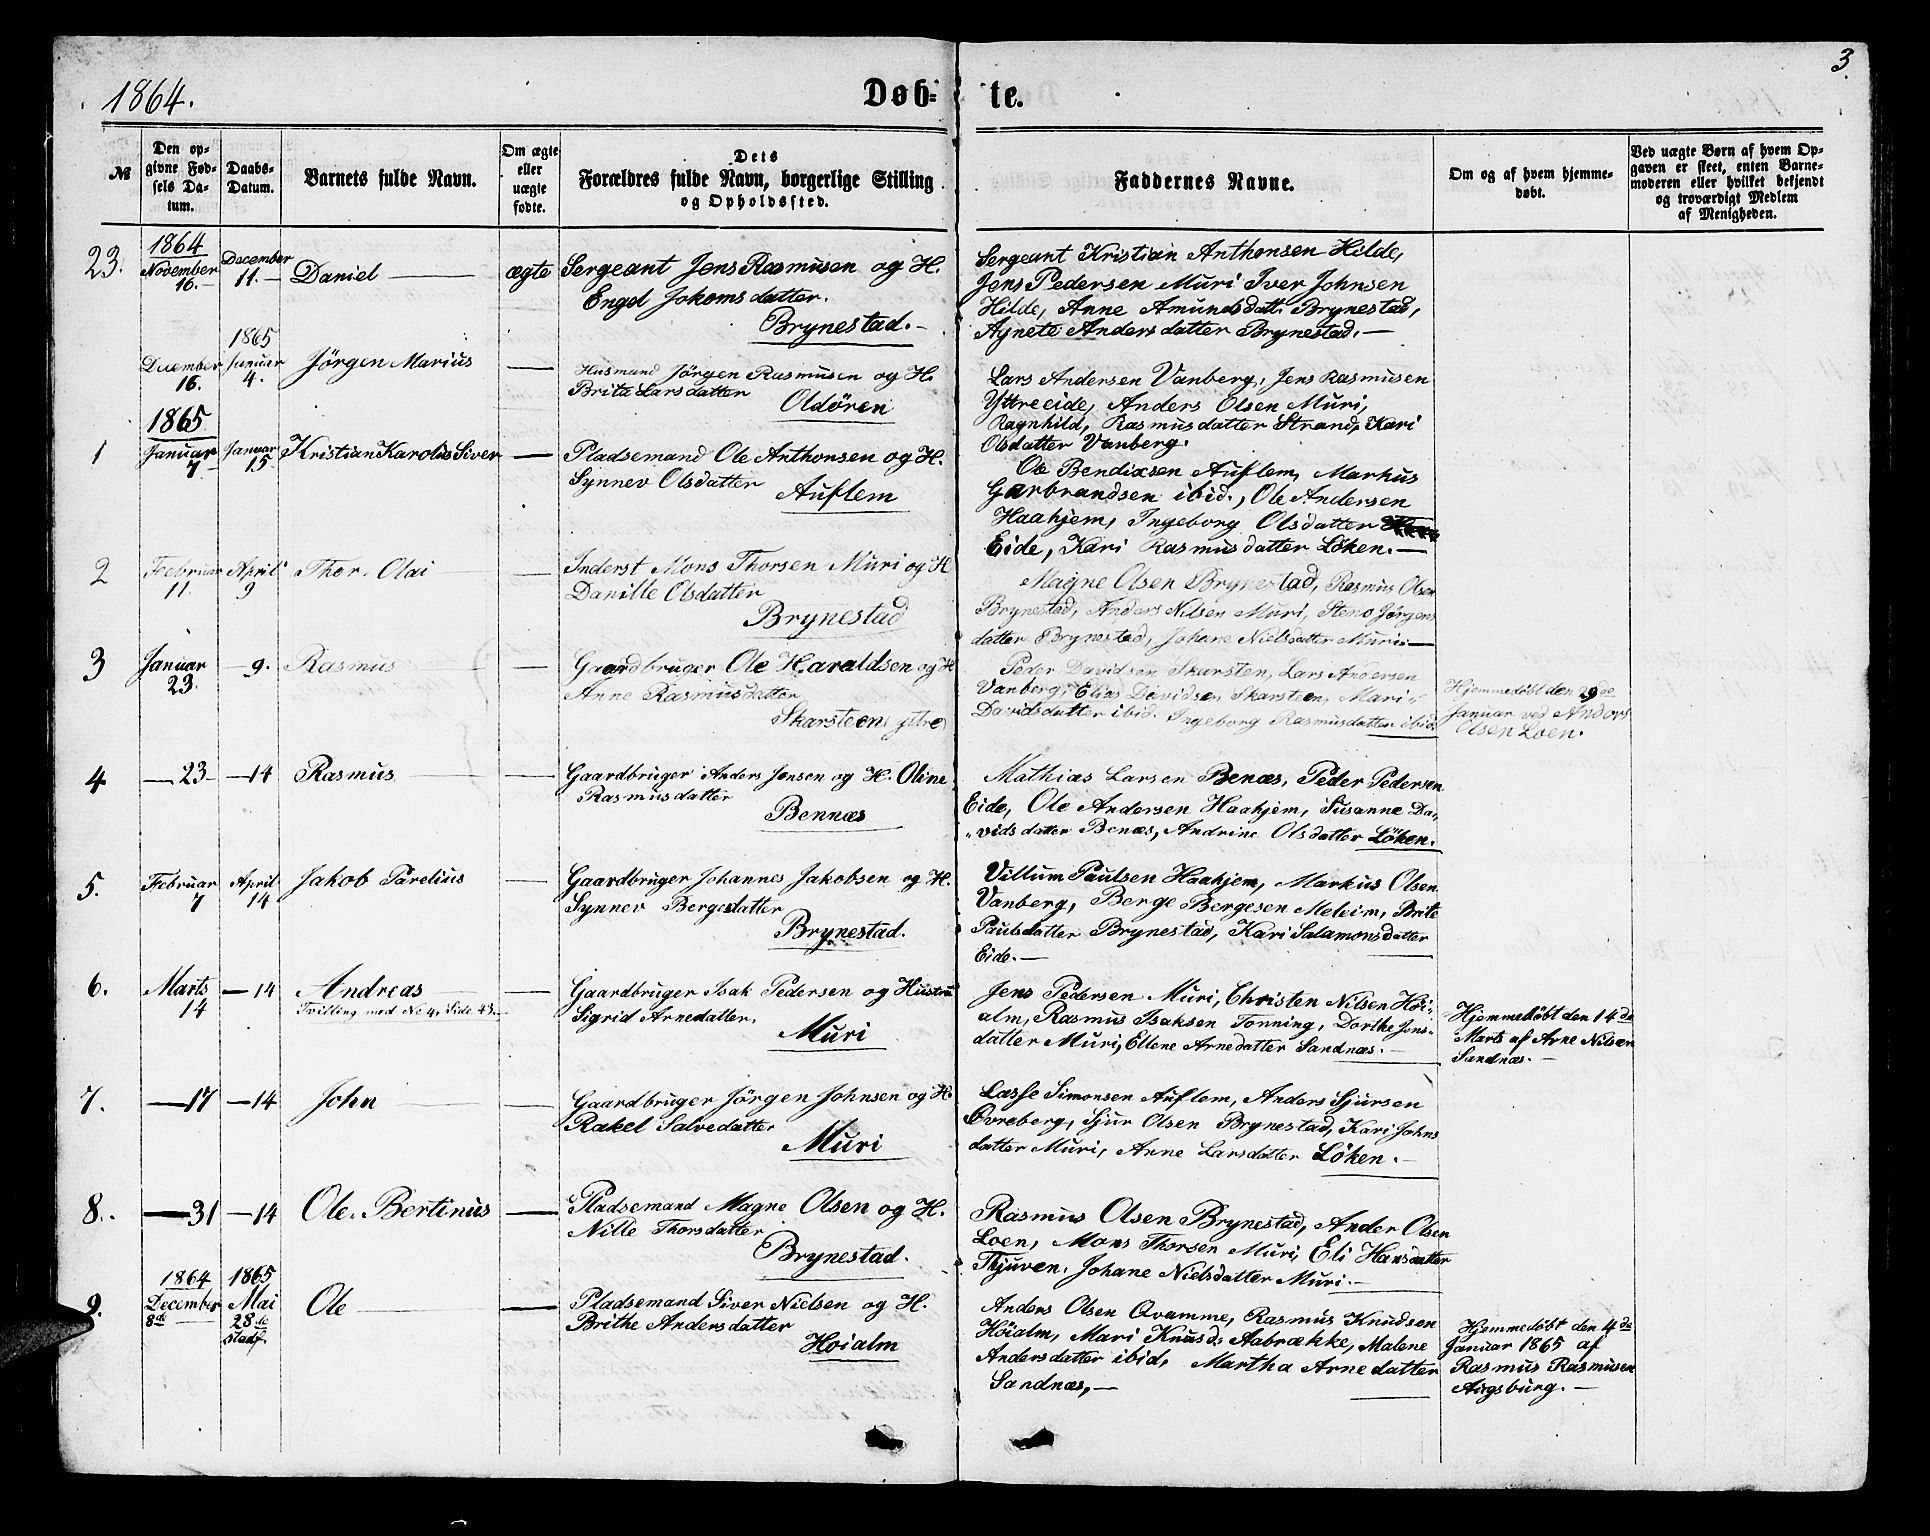 3
1864.
Døb- te.
№
Den op-
givne Fød-
sels Da-
tum.
Daabs-
Datum.
Barnets fulde Navn.
Om ægte
eller
uægte
fødte.
Dets
Forældres fulde Navn, borgerlige Stilling
og Opholdssted.
Faddernes Navne.
Om og af hvem hjemme-
døbt.
Ved uægte Børn af hvem Op-
gaven er skeet, enten Barne-
moderen eller hvilket bekjendt
og troværdigt Medlem
af Menigheden.
23.
1864
November
16.
December
11.
Daniel
ægte
Sergeant Jens Rasmusen og H.
Engel Jokomsdatter.
Brynestad.
Sergeant Kristian Anthonsen Hilde,
Jens Pedersen Muri Iver Johnsen
Hilde, Anne Amundsdatt. Brynestad,
Agnete Andersdatter Brynestad.
December
16.
1865
Januar
4.
Jørgen Marius
Husmand Jørgen Rasmusen og H.
Brite Larsdatter
Oldören
Lars Andersen Vanberg, Jens Rasmusen
Yttreeide, Anders Olsen Muri,
Ragnhild, Rasmusdatter Strand, Kari
Olsdatter Vanberg.
1865
1
Januar
7
Januar
15.
Kristian Karolus Siver
Pladsemand Ole Anthonsen og H.
Synnev Olsdatter
Auflem
Ole Bendixsen Auflem, Markus
Garbrandsen ibid., Ole Andersen
Haahjem, Ingeborg Olsdatter
Eide, Kari Rasmusdatter Løken.
2
Februar
11.
April
9
Thor. Olai
Inderst Mons Thorsen Muri og H
Danille Olsdatter
Brynestad
Magne Olsen Brynestad, Rasmus Olsen
Brynestad, Anders Nilsen Muri, Steno Jørgens
datter Brynestad, Johane Nielsdatter Muri.
3
Januar
23.
9.
Rasmus
Gaardbruger Ole Haraldsen og H
Anne Rasmusdatter
Skarsteen ytre
Peder Davidsen Skarsten, Lars Andersen
Vanberg, Elias Davidsen Skarsten, Mari
Davidsdatter ibid. Ingeborg Rasmusdatter ibid.
Hjemmedøbt den 29de
Januar ved Anders
Olsen Loen.
4
23
14
Rasmus
Gaardbruger Anders Jensen og H. Oline
Rasmusdatter
Bennæs
Mathias Larsen Benæs, Peder Pedersen
Eide, Ole Andersen Haahjem, Susanne Da-
vidsdatter Benæs, Andrine Olsdatter Løken.
5.
Februar
7
April
14
Jakob Parelius
Gaardbruger Johannes Jakobsen og H.
Synnev Bergesdatter
Brynestad.
Villum Paulsen Haahjem, Markus Olsen
Vanberg, Berge Bergesen Meleim, Brite
Paulsdatter Brynestad, Kari Salamonsdatter
Eide.
6.
Marts
14
14
Andreas
Tvilling med No 4, Side 43.
Gaardbruger Isak Pedersen og Hustru
Sigrid Arnedatter,
Muri
Jens Pedersen Muri, Christen Nilsen Høi-
alm, Rasmus Isaksen Tonning, Dorthe Jens-
datter Muri, Ellene Arnedatter Sandnæs.
Hjemmedøbt den 14de
Marts af Arne Nilsen
Sandnæs.
7.
17
14
John
Gaardbruger Jørgen Johnsen og H.
Rakel Salvedatter
Muri
Lasse Simonsen Auflem, Anders Sjursen
Øvreberg, Sjur Olsen Brynestad, Kari Johns
datter Muri, Anne Larsdatter Løken.
8.
31
14
Ole. Bertinus
Pladsemand Magne Olsen og H.
Nille Thorsdatter
Brynestad.
Rasmus Olsen Brynestad, Ander Olsen
Loen, Mons Thorsen Muri, Eli Hansdatter
Thjuven. Johane Nielsdatter Muri.
9.
1864
December
8de
1865
Mai
28de
stadf.
Ole
Pladsemand Siver Nielsen og H.
Brithe Andersdatter
Høialm
Anders Olsen Qvamme, Rasmus Knudsen
Høialm, Mari Knusd. Aabrække, Malene
Andersdatter ibid, Martha Arnedatter
Sandnæs,
Hjemmedøbt den 4de
Januar 1865 af
Rasmus Rasmusen
Augsburg.